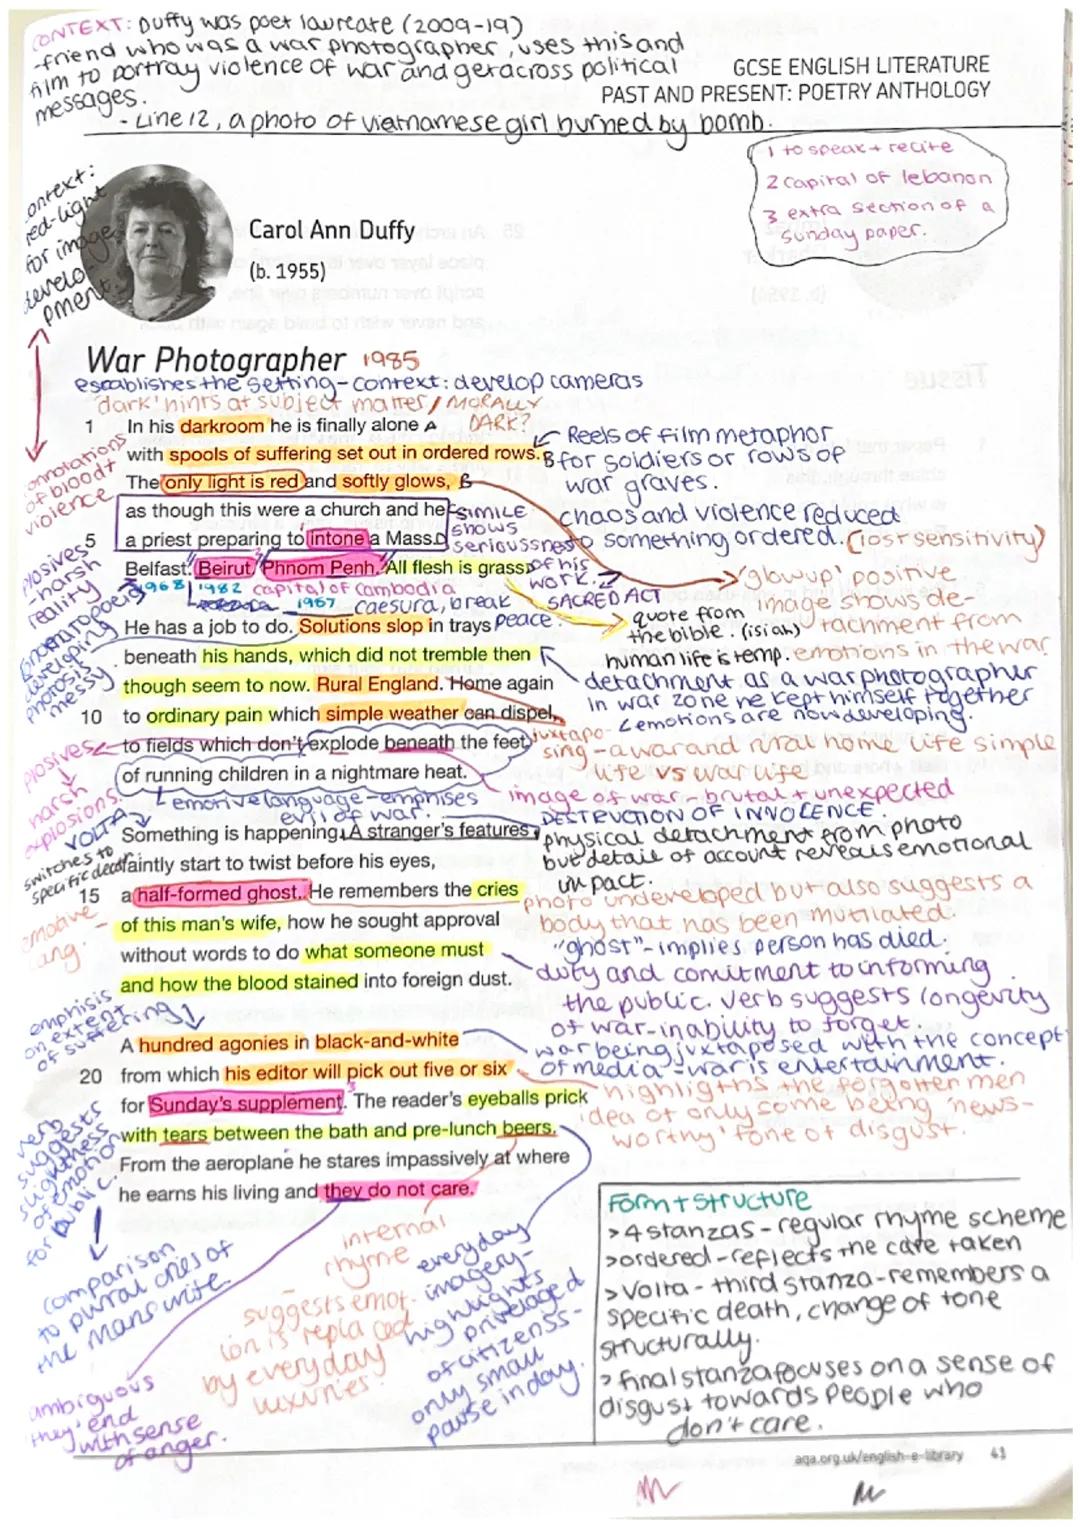 CONTEXT: Duffy was poet laureate (2009-19)
-friend who was a war photographer, uses this and
film to portray violence of war and get across political
messages.
- Line 12, a photo of vietnamese girl burned by bomb.
GCSE ENGLISH LITERATURE
PAST AND PRESENT: POETRY ANTHOLOGY
1 to speak + recite
2 capital of lebanon
3 extra section of a
Sunday paper.
context:
red-light
for image
develo-
pment.
Carol Ann Duffy
(b. 1955)
War Photographer 1985
establishes the setting - context: develop cameras
'dark' hints at subject matter / MORALLY
DARK?
1 In his darkroom he is finally alone A
with spools of suffering set out in ordered rows. B
The only light is red and softly glows, B
as though this were a church and he
5 a priest preparing to intone a Mass.
Belfast. Beirut. Phnom Penh. All flesh is grass.
1968 1982 capital of cambodia
1967 caesura, break
peace.
He has a job to do. Solutions slop in trays
beneath his hands, which did not tremble then
though seem to now. Rural England. Home again
10 to ordinary pain which simple weather can dispel,
to fields which don't explode beneath the feet
of running children in a nightmare heat.
emotive language - emphises
evil of war.
Something is happening. A stranger's features
faintly start to twist before his eyes,
15 a half-formed ghost. He remembers the cries
of this man's wife, how he sought approval
without words to do what someone must
and how the blood stained into foreign dust.
A hundred agonies in black-and-white
20 from which his editor will pick out five or six
for Sunday's supplement. The reader's eyeballs prick
with tears between the bath and pre-lunch beers.
From the aeroplane he stares impassively at where
he earns his living and they do not care.
connotations
of blood +
violence
plosives
-harsh
reality
developing
messy
plosives
harsh
explosions.
VOLTA
switches to
specific death
emotive
lang.
emphisis
on extent
of suffering
verb
suggests
slightness
of emotion
for public.
comparison
to plural cries of
the mans wife
ambiguous
'they' end
with sense
of anger.
Reels of film metaphor
for soldiers or rows of
war graves.
chaos and violence reduced
to something ordered. (lost sensitivity)
SIMILE
shows
seriousness
of his
work.
SACRED ACT
'glow up' positive
image shows de-
tachment from
emotions in the war
quote from
the bible.
human life is temp.
detachment as a war photographer
in war zone he kept himself together
emotions are now developing.
juxtapo-
sing - a war and rural home life simple
life vs war life
image of war - brutal + unexpected
DESTRUCTION OF INNOLENCE.
physical detachment from photo
but detail of account reveals emotional
impact.
photo undeveloped but also suggests a
body that has been mutilated.
"ghost" - implies person has died.
duty and comitment to informing
the public. verb suggests longevity
of war - inability to forget.
war being juxtaposed with the concept
of media - war is entertainment.
highligths the forgotten men
idea of only some being 'news-
worthy' tone of disgust.
internal
rhyme
suggests emot-
ion is replaced
by everyday
luxuries.
everyday
imagery-
highlights
privelaged
of citizenss-
only small
pause in day.
Form + Structure
> 4 stanzas - regular rhyme scheme
> ordered - reflects the care taken
> Volta - third stanza - remembers a
specific death, change of tone
structurally.
> final stanza focuses on a sense of
disgust towards people who
don't care.
aqa.org.uk/english-e-library 41